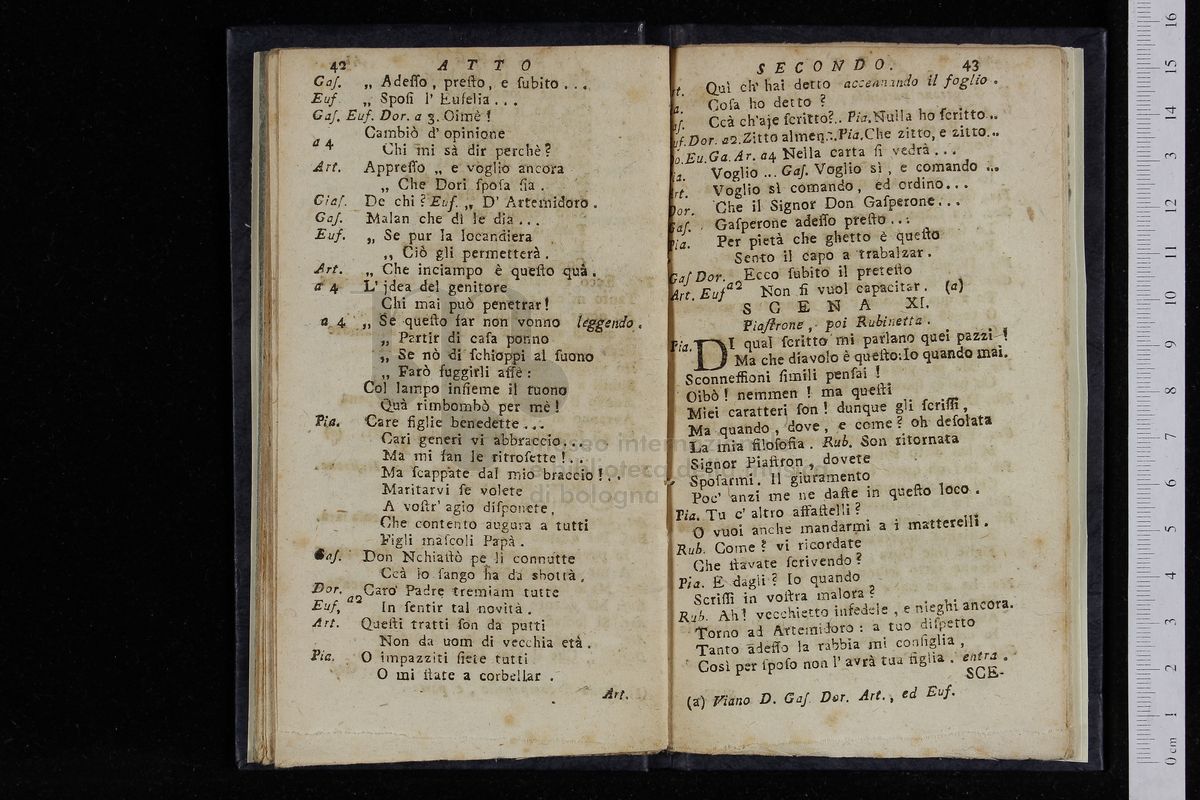 42 ATTO
Gaſ. „ Adeſſo, preſto, e ſubito...
Euf „ Spoſi l' Eufelia...
Gaſ. Euf. Dor. a 3. Oimè!
Cambiò d' opinione
a 4 Chi mi sà dir perchè?
Art. Appreſſo „ e voglio ancora
„ Che Dori ſpoſa ſia.
Ciaſ. De chi? Euf. „ D' Artemidoro.
Gaſ. Malan che dì le dia...
Euf. „ Se pur la locandiera
„ Ciò gli permetterà.
Art. „ Che inciampo è queſto quà.
a 4 L' idea del genitore
Chi mai può penetrar!
a 4 „ Se queſto far non vonno leggendo.
„ Partir di caſa ponno
„ Se nò di ſchioppi al ſuono
„ Farò fuggirli affè:
Col lampo inſieme il tuono
Quà rimbombò per mè!
Pia. Care figlie benedette...
Cari generi vi abbraccio...
Ma mi fan le ritroſette!..
Ma ſcappate dal mio braccio!..
Maritarvi ſe volete
A voſtr' agio diſponete,
Che contento augura a tutti
Figli maſcoli Papà.
Gaſ. Don Nchiaſtò pe li connutte
Ccà lo ſango ha da sbottà,
Dor. Caro Padre tremiam tutte
Euf, a2 In ſentir tal novità.
Art. Queſti tratti ſon da putti
Non da uom di vecchia età.
Pia. O impazziti ſiete tutti
O mi ſtate a corbellar.
Art.
SECONDO. 43
rt. Quì ch' hai detto accennando il foglio.
a. Coſa ho detto?
aſ. Ccà ch'aje ſcritto?.. Pia. Nulla ho ſcritto..
uf. Dor. a2. Zitto almen.. Pia. Che zitto, e zitto...
o. Eu. Ga. Ar. a4 Nella carta ſi vedrà...
ia. Voglio... Gaſ. Voglio sì, e comando...
rt. Voglio sì comando, ed ordino...
Dor. Che il Signor Don Gaſperone...
Gaſ. Gaſperone adeſſo preſto...
Pia. Per pietà che ghetto è queſto
Sento il capo a trabalzar.
Gaſ Dor. Ecco ſubito il preteſto
Art. Euf a2 Non ſi vuol capacitar. (a)
SCENA XI.
Piaſtrone, poi Rubinetta.
Pia. DI qual ſcritto mi parlano quei pazzi!
Ma che diavolo è queſto: Io quando mai.
Sconneſſioni ſimili penſai!
Oibò! nemmen! ma queſti
Miei caratteri ſon! dunque gli ſcriſſi,
Ma quando, dove, e come? oh deſolata
La mia filoſofia. Rub. Son ritornata
Signor Piaſtron, dovete
Spoſarmi. Il giuramento
Poc' anzi me ne daſte in queſto loco.
Pia. Tu c' altro affaſtelli?
O vuoi anche mandarmi a i matterelli.
Rub. Come? vi ricordate
Che ſtavate ſcrivendo?
Pia. E dagli? Io quando
Scriſſi in voſtra malora?
Rub. Ah! vecchietto infedele, e nieghi ancora.
Torno ad Artemidoro: a tuo diſpetto
Tanto adeſſo la rabbia mi conſiglia,
Così per ſpoſo non l' avrà tua figlia. entra.
SCE-
(a) Viano D. Gaſ Dor. Art., ed Euf.